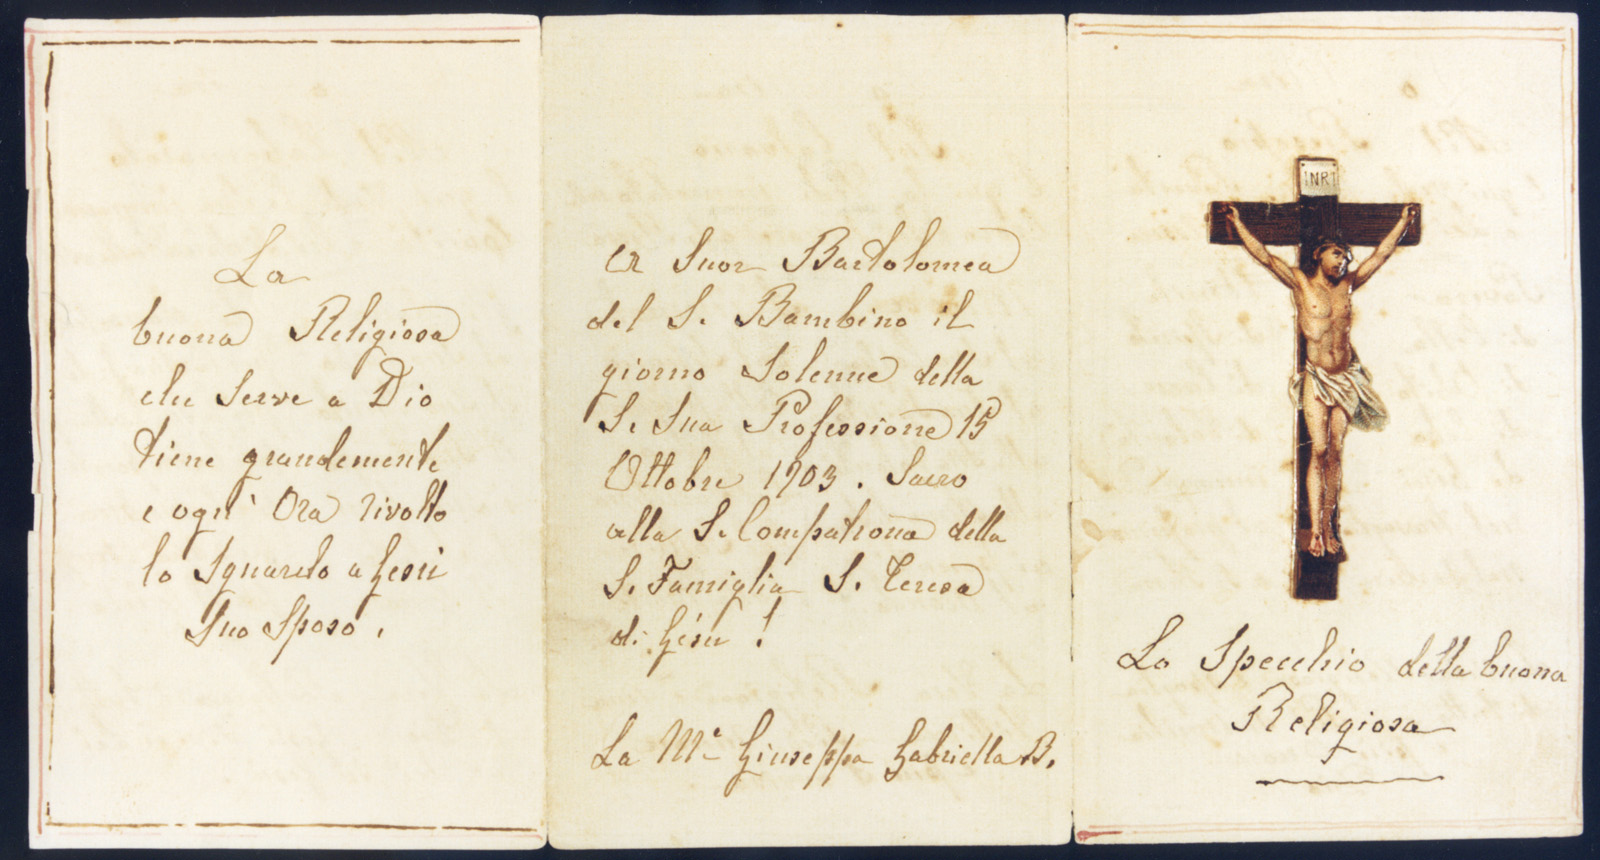 La
buona Religiosa
che Serve a Dio
tiene grandemente
e ogni Ora rivolto
lo Sguardo a Gesù
Suo Sposo.
A Suor Bartolomea
del S. Bambino il
giorno Solenne della
S. Sua Professione 15
Ottobre 1903. Sacro
alla S. Compatrona della
S. Famiglia S. Teresa
di Gesù!
La Me Giuseppa Gabriella B.
INRI
Lo Specchio della buona
Religiosa